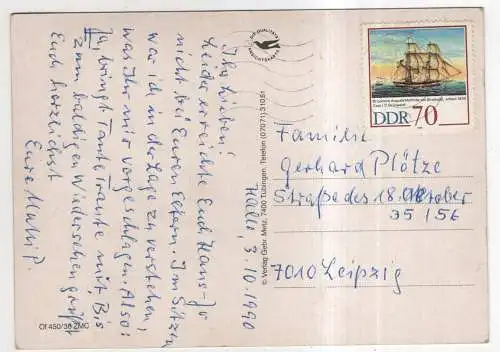 Halle, 3.10.1990
Ihr Lieben!
Leider erreichte Euch Hans-Jo
nicht bei Euren Eltern. Im Sitzen
war ich in der Lage zu verstehen,
was Ihr mir vorgeschlagen. Also:
Ja, bringt Tante Traute mit, Bis
zum baldigen Wiedersehen grüßt
Euch herzlichst
Eure
© Verlag Gebr. Metz, 7400 Tübingen, Telefon (07071) 31051
Of 450/38 ZMC
DIE QUALITÄTS
ANSICHTSKARTE
DDR 70
Familie
Gerhard Plötze
Straße des 18. Oktober
35 / 56
7010 Leipzig